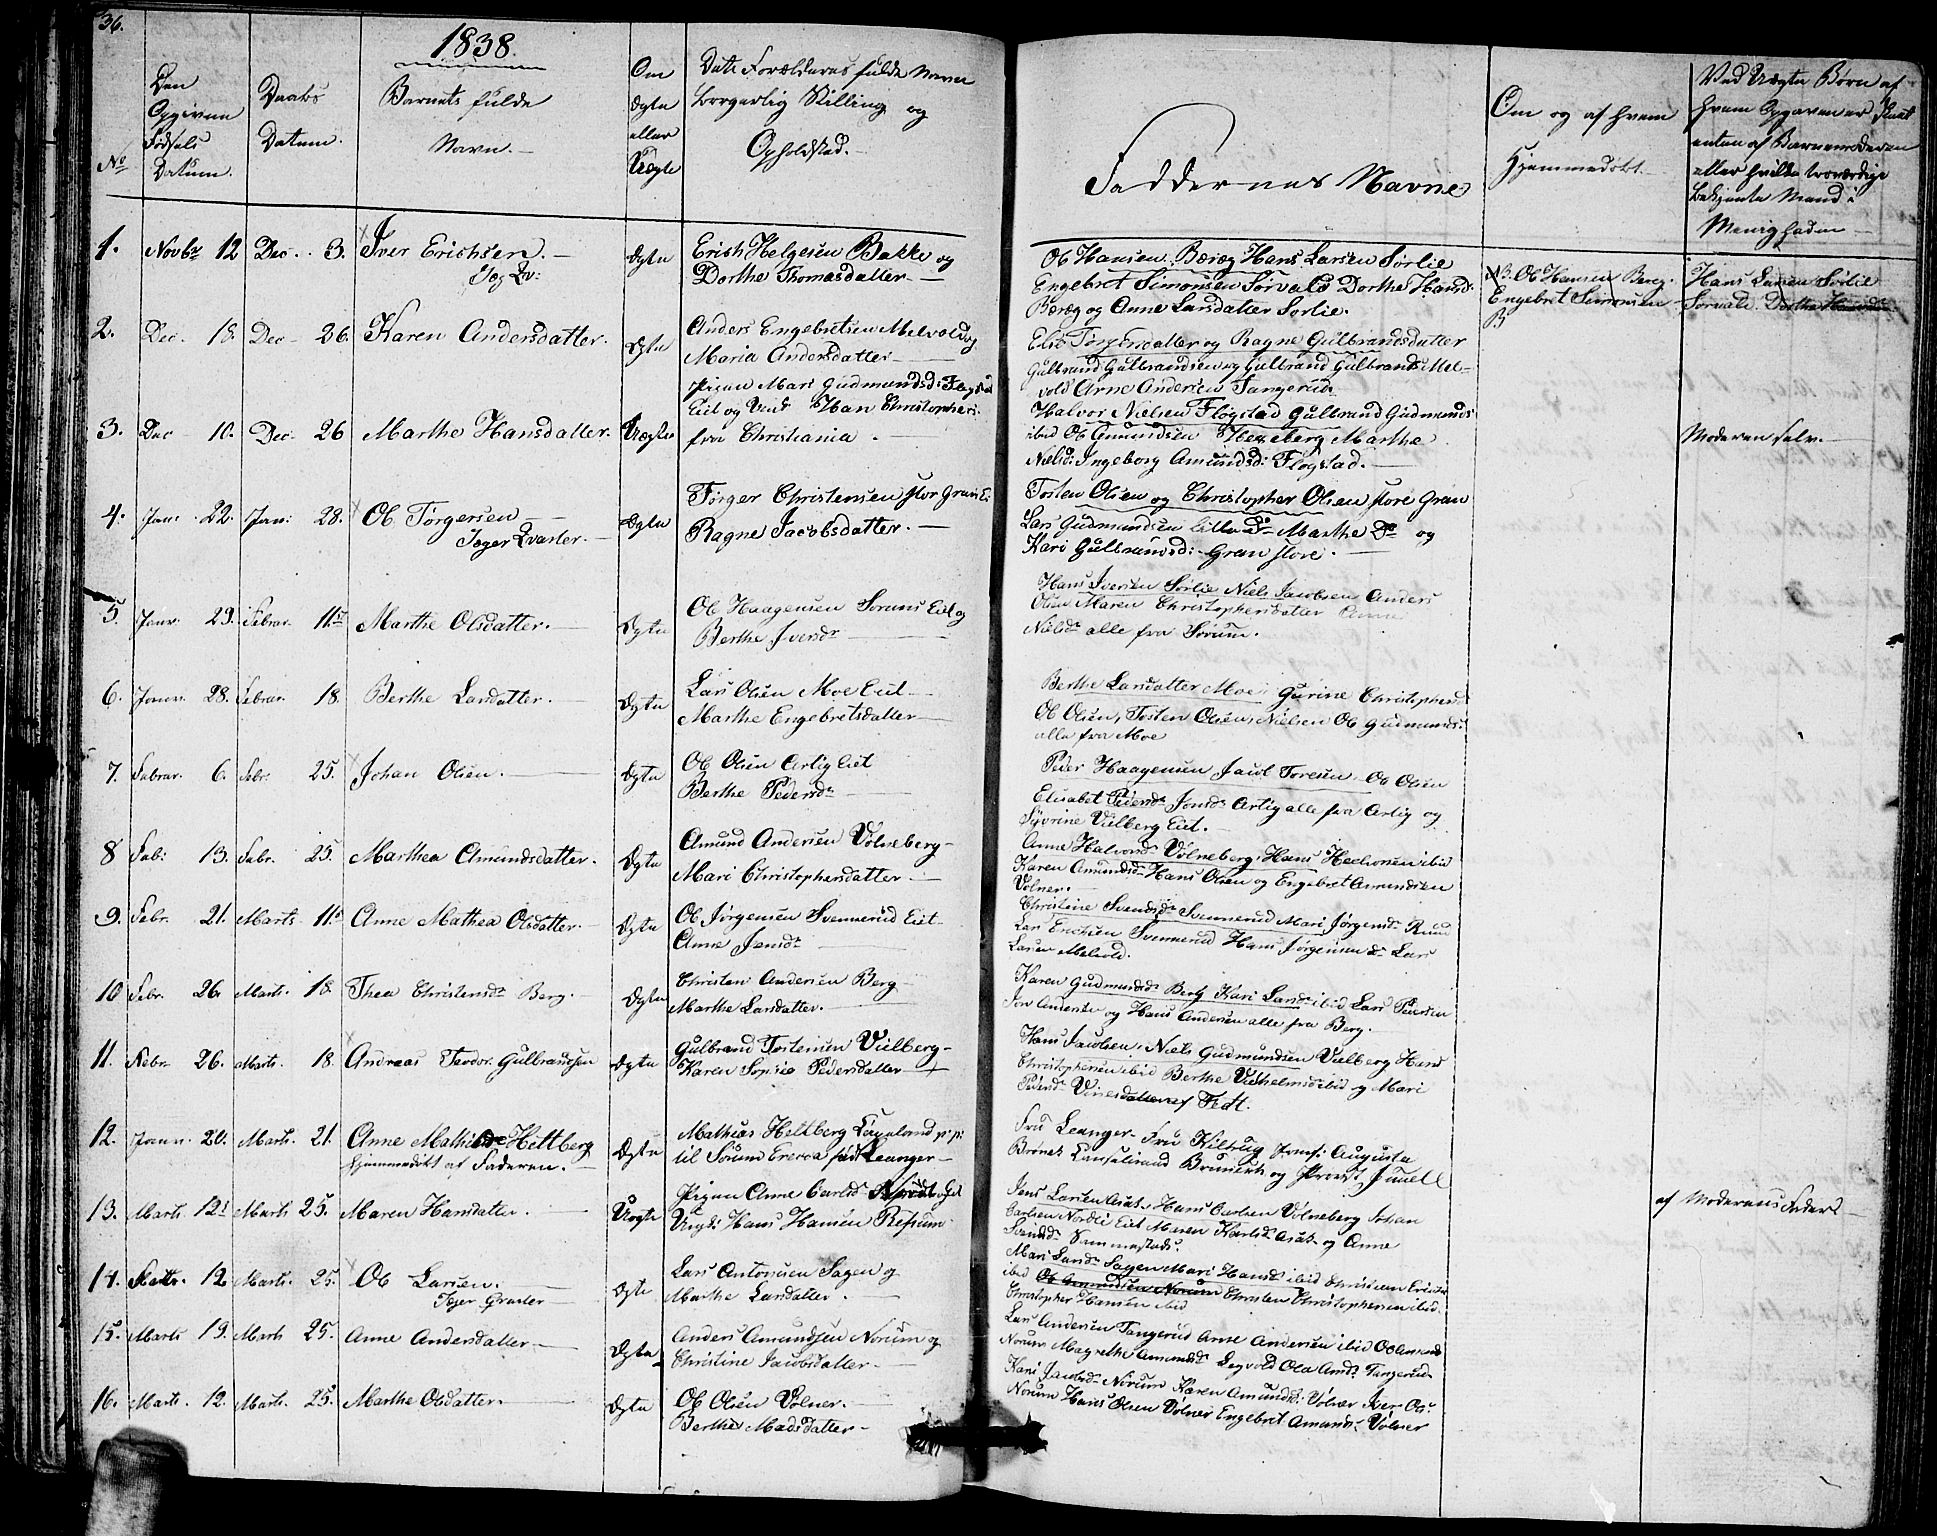 36.
1838.
No
Den
Opgivne
Fødsels
Datum.
Daabs
Datum.
Barnets fulde
Navn.
Om
ægte
eller
Uægte
Dets Forældres fulde Navne
borgerlig Stilling og
Opholdsted.
Faddernes Navne
Om og af hvem
Hjemmedøbt.
Ved Uægte Børn af
hvem Opgaven er skeet
enten af Barnemoderen
eller hvilke troværdige
bekjente Mænd i
Menigheden
1. Novbr 12 Dec. 3. Iver Erichsen. ægte Erich Helgesen Bakke og
Dorthe Thomasdatter
Ole Hansen Berg Hans Larsen Sørlie
Engebret Simonsen Sørvald Dorthe Hansd:
Berg og Anne Larsdatter Sørlie.
NB. Ole Hansen Berg.
Engebret Simonsen
Hans Larsen Sørlie
Sørvald. Dorthe Hansd.
2. Dec. 18. Dec 26. Karen Andersdatter. ægte Anders Engebretsen Melvold og
Maria Andersdatter
Else Torgersdatter og Ragne Gulbrandsdatter
Gulbrand Gulbrandsen og Gulbrand Gulbrands Mel-
vold Arne Andersen Tangerud
3. Dec 10. Dec. 26 Marthe Hansdatter. Uægte Pigen Mari Gudmundsd: Flogstad
Eiet og Hans Christophers:
fra Christiania.
Halvor Nielsen Flogstad Gulbrand Gudmunds
ibid Ole Amundsen Hexeberg Marthe
Nielsd: Ingeborg Amundsd: Flogstad.
Moderen selv.
4. Jan: 22. Jan: 28. Ole Torgersen
Jæger Qvarter.
ægte Torger Christensen stor Gran Ei
Ragne Jacobsdatter.
Tosten Olsen og Christopher Olsen store Gran
Lars Gudmundsen lille Do Marthe Do og
Kari Gulbrandsd: Gran store.
5. Janr. 29. Febrar. 11. Marthe Olsdatter. ægte Ole Haagensen Sorums Eiet og
Berthe Iversdr
Hans Iversen Sørlie Niels Jacobsen Anders
Olsen Maren Christophersdatter Anne
Nielsdr alle fra Sørum.
6. Janvr. 28. Febrar. 18. Berthe Larsdatter. ægte Lars Olsen Moe Eiet
Marthe Engebretsdatter
Berthe Larsdatter Moe Gurine Christophersd
Ole Olsen, Tosten Olsen, Nielsen Ole Gudmunds:
alle fra Moe
7. Febrar. 6. Febr. 25. Johan Olsen. ægte Ole Olsen Arlig Eiet
Berthe Pedersdr
Peder Haagensen Jacob Toresen Ole Olsen
Elisabet Pedersdr Jonsdr Arlig alle fra Arlig og
Syvrine Vilberg Eiet.
8 Feb: 13. Febr. 25. Marthea Amundsdatter. ægte Amund Andersen Volneberg
Mari Christophersdatter
Anne Halvorsd Volneberg, Hans ibid
Karen Amundsdr Hans Olsen og Engebret Amundsen
Volner.
9. Febr. 21. Marts 11. Anne Mathea Olsdatter. ægte Ole Jørgensen Svennerud Eiet
Anne Jensdr
Christine Svendsdr Svennerud Mari Jørgensdr Ruud
Lars Erichsen Svennerud Hans Jørgensen do Lars
Larsen Melvold.
10 Febr. 26. Marts. 18. Thea Christensdr Berg. ægte Christen Andersen Berg
Marthe Larsdatter.
Karen Gudmundsdr Berg Kari Larsdr ibid Lars Pedersen
Jon Andersen og Hans Andersen alle fra Berg.
11. Febr. 26. Marts. 18. Andreas Teodor Gulbrandsen ægte Gulbrand Tostensen Vilberg
Karen Sophie Pedersdatter
Hans Jacobsen, Niels Gudmundsen Vilberg Hans
Christophersen ibid Berthe Vilhelmsd ibid og Mari
Pedersdr
12. Janv. 20. Marts. 21. Anne Mathilde Heltberg
hjemmedøbt af Faderen.
ægte Mathias Heltberg Capeland p: p:
til Sørum født Leanger
Frü Leanger Frü Kiltrüg Jomf: Augusta
og Provst Junell
13. Marts 12. Marts 25. Maren Hansdatter. Uægte Pigen Anne Carlsd
Ungk: Hans Hansen Refsum
Jens Larsen Asak, Hans Carlsen Volneberg Johan
Carlsen Nordli Eiet Maren Karlsd Asak og Anne
Svendsdr
af Moderens Fader
14. 12. Marts. 25. Ole Larsen.
Jæger Qvarter
ægte Lars Antonsen Fagen og
Marthe Larsdatter.
Mari Larsdr Fagen Mari Hansdr ibid Christian Erichs
ibid Ole Amundsen Norum Christen Christophersen ibid.
Christopher Hansen ibid
15. Marts 19. Marts 25. Anne Andersdatter. ægte Anders Amundsen Norum og
Christine Jacobsdatter.
Lars Andersen Tangerud Arne Andersen ibid Ole Amunds
Norum Magrethe Amundsd Legvold Ola Andr. Tangerud
16. Marts. 12. Marts. 25. Marthe Olsdatter. ægte Ole Olsen Volner.
Berthe Madsdatter
Kari Jacobsd. Norum Karen Amundsd: Volner Iver Ols:
Norum Hans Olsen Volner Engebret Amunds. Volner